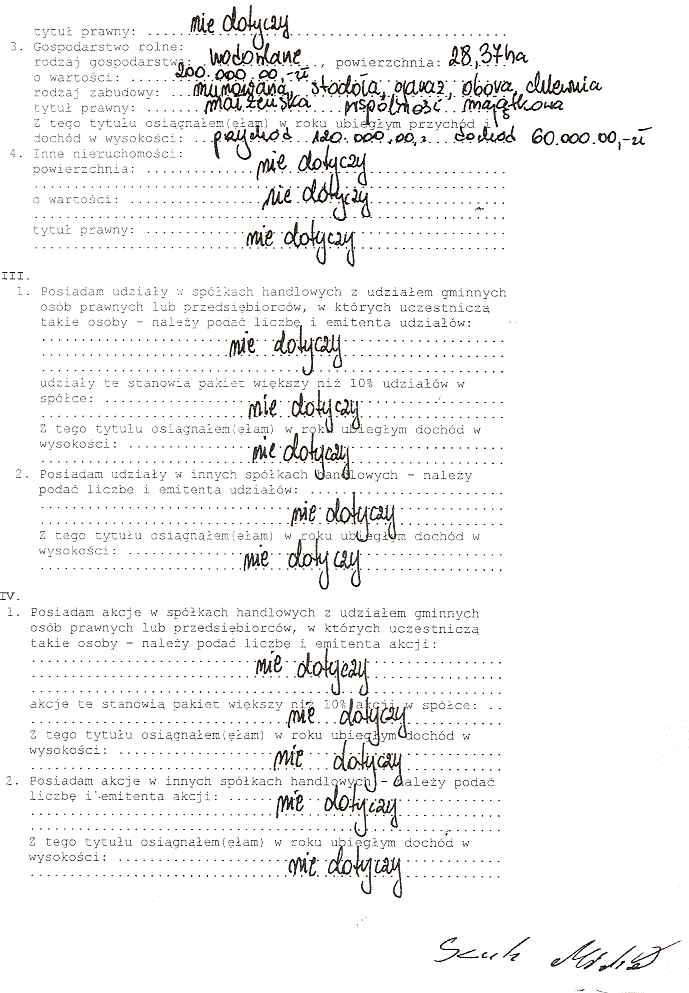 tytuł prawny: nie dotyczy
3. Gospodarstwo rolne:
rodzaj gospodarstwa: hodowlane, powierzchnia: 28,37ha
o wartości: 200.000.00,-zł
rodzaj zabudowy: murowana, stodoła, garaż, obora, chlewnia
tytuł prawny: małżeńska wspólność majątkowa
Z tego tytułu osiągnąłem(ełam) w roku ubiegłym przychód i
dochód w wysokości: przychód 120.000.00,- dochód 60.000.00,-zł
4. Inne nieruchomości:
powierzchnia: nie dotyczy
o wartości: nie dotyczy
tytuł prawny: nie dotyczy
III.
1. Posiadam udziały w spółkach handlowych z udziałem gminnych
osób prawnych lub przedsiębiorców, w których uczestniczą
takie osoby - należy podać liczbę i emitenta udziałów:
nie dotyczy
udziały te stanowia pakiet większy niż 10% udziałów w
spółce: nie dotyczy
Z tego tytułu osiągnąłem(ełam) w roku ubiegłym dochód w
wysokości: nie dotyczy
2. Posiadam udziały w innych spółkach handlowych - należy
podać liczbę i emitenta udziałów:
nie dotyczy
Z tego tytułu osiągnąłem(ełam) w roku ubiegłym dochód w
wysokości: nie dotyczy
IV.
1. Posiadam akcje w spółkach handlowych z udziałem gminnych
osób prawnych lub przedsiębiorców, w których uczestniczą
takie osoby - należy podać liczbę i emitenta akcji:
nie dotyczy
akcje te stanowią pakiet większy niż 10% akcji w spółce:
nie dotyczy
Z tego tytułu osiągnąłem(ełam) w roku ubiegłym dochód w
wysokości: nie dotyczy
2. Posiadam akcje w innych spółkach handlowych - należy podać
liczbę i emitenta akcji: nie dotyczy
Z tego tytułu osiągnąłem(ełam) w roku ubiegłym dochód w
wysokości: nie dotyczy